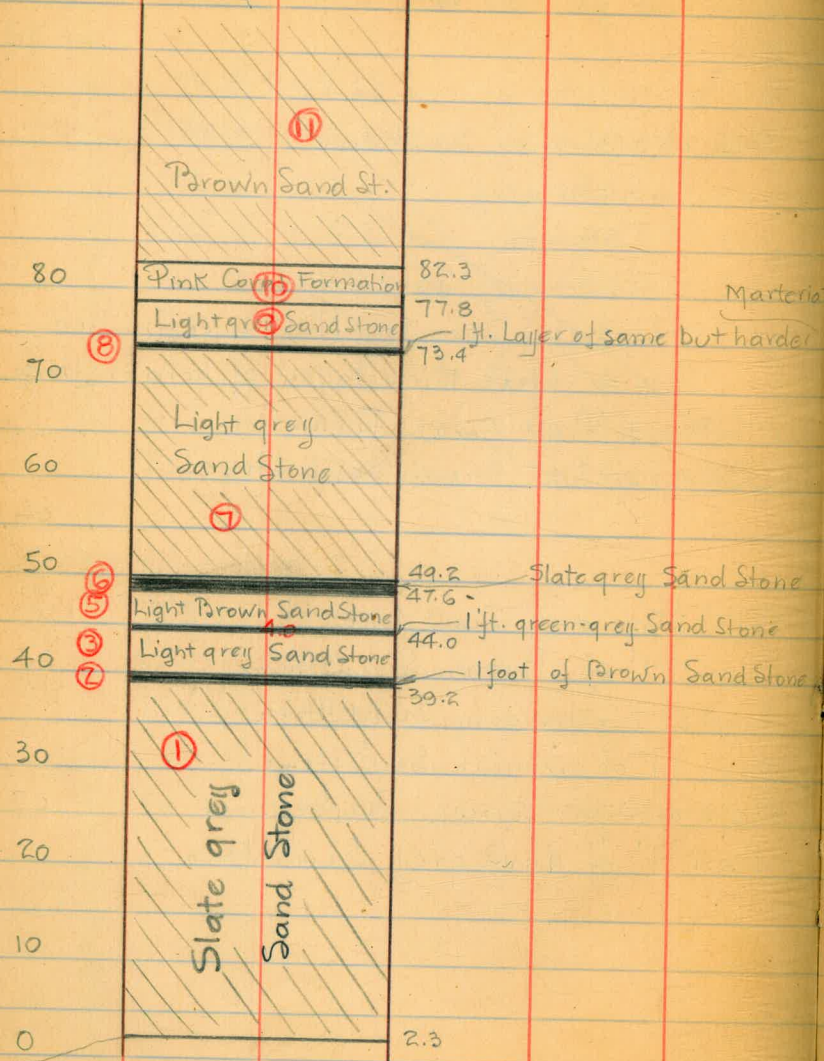 11
Brown Sand St.
80
Pink Formation
10
82.3
77.8
Light grey Sand Stone
9
Marteria
1 ft. Layer of same but harder
8
73.4
70
Light grey
Sand Stone
60
7
50
49.2
Slate grey Sand Stone
6
47.6
5
Light Brown Sand Stone
1 ft. green-grey Sand Stone
3
4.0
44.0
40
Light grey Sand Stone
2
1 foot of Brown Sand Stone
39.2
30
1
Slate grey
Sand Stone
20
10
0
2.3